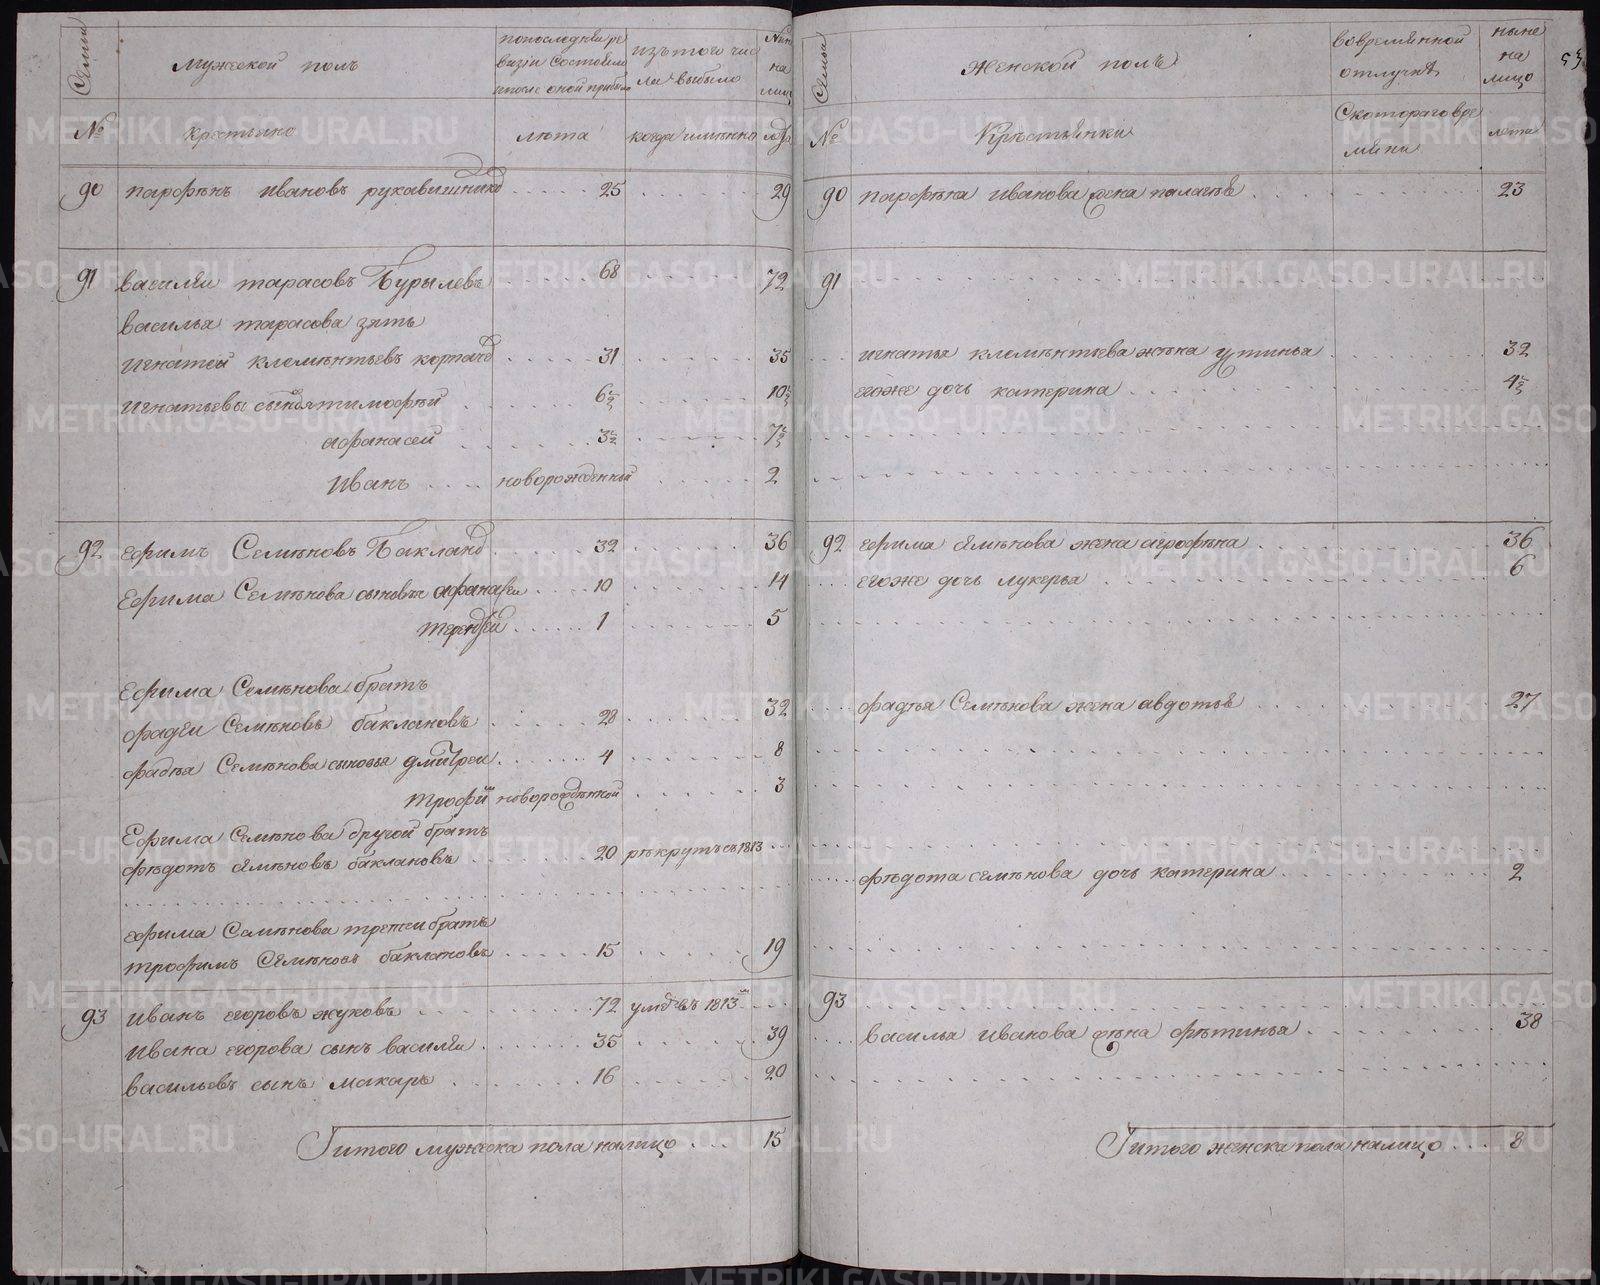 Семьи
Мужеской полъ
попоследней ре
визіи Состояло
ипосле оной прибыло
изътого чис
ла выбыло
Ныне
на
лицо
№
крестьяне
лѣта
когда имѣнно
лѣта
90 парфѣнъ ивановъ рукавишнико 25 29
91 василѣи тарасовъ Бурылевъ 68 72
василья тарасова зять
игнатей клемѣнтьевъ корпаче 31 35
игнатьевы сыновя тимофѣи 6½ 10½
афанасеи 3½ 7½
Иванъ новорожденныи 2
92 ефимъ Семѣновъ Баклано 32 36
Ефима Семѣнова сыновья афанасеи 10 14
терентей 1 5
Ефима Семѣнова братъ
фадѣи Семѣновъ баклановъ 28 32
фадѣя Семѣнова сыновья дмитреи 4 8
трофимъ новорождѣнной 3
Ефима Семѣнова другой братъ
фѣдотъ Семѣновъ баклановъ 20 рѣкрутъ съ 1813
ефима Семѣнова третеи братъ
трофимъ Семѣновъ баклановъ 15 19
93 иванъ егоровъ жуковъ 72 умре въ 1813м
ивана егорова сынъ василѣи 35 39
васильевъ сынъ макаръ 16 20
итого мужеска пола налицо 15
Семьи
Женской полъ
вовремѧнной
отлучкѣ
ныне
на
лицо
53
№
Крѣстьянки
Скотораго вре
мѣни
лета
90 парфѣна иванова жена палагѣя 23
91
игнатья клемѣнтьева жѣна устинья 32
егоже дочь катерина 4½
92 ефима Семѣнова жена агрофѣна 36
егоже дочь лукерья 6
фадѣя Семѣнова жена авдотья 27
фѣдота семѣнова дочь катерина 2
93
василья иванова жѣна фѣтинья 38
итого женска пола налицо 8
METRIKI.GASO-URAL.RU